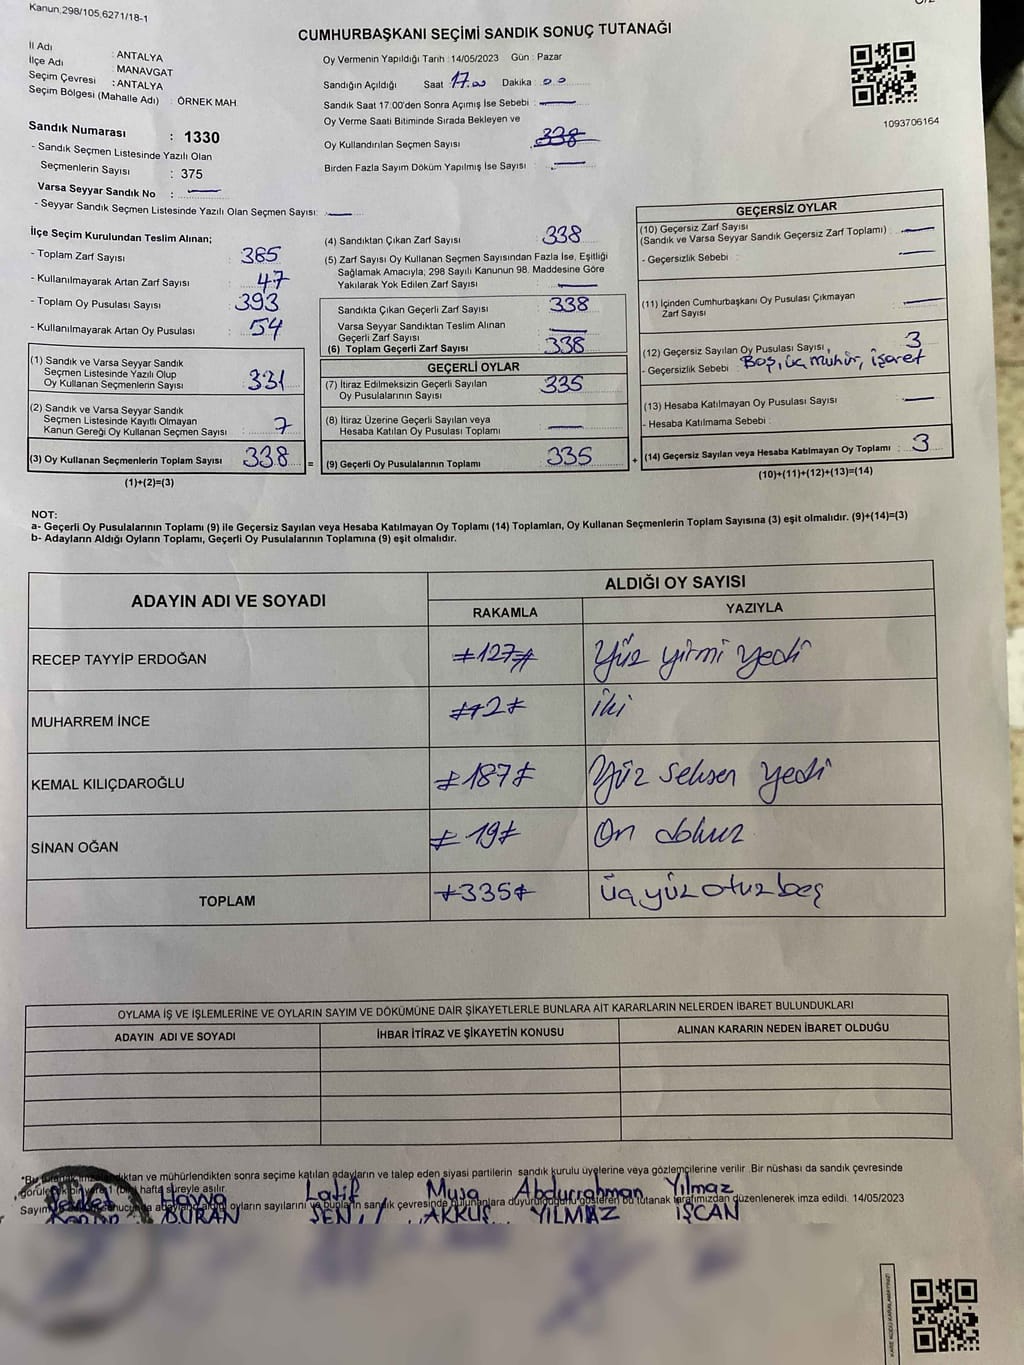 Kanun.298/105,6271/18-1
CUMHURBAŞKANI SEÇİMİ SANDIK SONUÇ TUTANAĞI
İl Adı : ANTALYA
İlçe Adı : MANAVGAT
Seçim Çevresi : ANTALYA
Seçim Bölgesi (Mahalle Adı) : ÖRNEK MAH.
Sandık Numarası : 1330
- Sandık Seçmen Listesinde Yazılı Olan
Seçmenlerin Sayısı : 375
Varsa Seyyar Sandık No :
- Seyyar Sandık Seçmen Listesinde Yazılı Olan Seçmen Sayısı:
Oy Vermenin Yapıldığı Tarih : 14/05/2023 Gün : Pazar
Sandığın Açıldığı Saat 17.00 Dakika 00
Sandık Saat 17:00'den Sonra Açılmış İse Sebebi :
Oy Verme Saati Bitiminde Sırada Bekleyen ve
Oy Kullandırılan Seçmen Sayısı : 338
Birden Fazla Sayım Döküm Yapılmış İse Sayısı :
1093706164
İlçe Seçim Kurulundan Teslim Alınan;
- Toplam Zarf Sayısı : 385
- Kullanılmayarak Artan Zarf Sayısı : 47
- Toplam Oy Pusulası Sayısı : 393
- Kullanılmayarak Artan Oy Pusulası : 54
(1) Sandık ve Varsa Seyyar Sandık
Seçmen Listesinde Yazılı Olup
Oy Kullanan Seçmenlerin Sayısı : 331
(2) Sandık ve Varsa Seyyar Sandık
Seçmen Listesinde Kayıtlı Olmayan
Kanun Gereği Oy Kullanan Seçmen Sayısı : 7
(3) Oy Kullanan Seçmenlerin Toplam Sayısı : 338 =
(1)+(2)=(3)
(4) Sandıktan Çıkan Zarf Sayısı : 338
(5) Zarf Sayısı Oy Kullanan Seçmen Sayısından Fazla İse, Eşitliği
Sağlamak Amacıyla, 298 Sayılı Kanunun 98. Maddesine Göre
Yakılarak Yok Edilen Zarf Sayısı :
Sandıkta Çıkan Geçerli Zarf Sayısı : 338
Varsa Seyyar Sandıktan Teslim Alınan
Geçerli Zarf Sayısı :
(6) Toplam Geçerli Zarf Sayısı : 338
GEÇERLİ OYLAR
(7) İtiraz Edilmeksizin Geçerli Sayılan
Oy Pusulalarının Sayısı : 335
(8) İtiraz Üzerine Geçerli Sayılan veya
Hesaba Katılan Oy Pusulası Toplamı :
(9) Geçerli Oy Pusulalarının Toplamı : 335 +
GEÇERSİZ OYLAR
(10) Geçersiz Zarf Sayısı
(Sandık ve Varsa Seyyar Sandık Geçersiz Zarf Toplamı) :
- Geçersizlik Sebebi :
(11) İçinden Cumhurbaşkanı Oy Pusulası Çıkmayan
Zarf Sayısı :
(12) Geçersiz Sayılan Oy Pusulası Sayısı : 3
- Geçersizlik Sebebi : Boş, üç mühür, işaret
(13) Hesaba Katılmayan Oy Pusulası Sayısı :
- Hesaba Katılmama Sebebi :
(14) Geçersiz Sayılan veya Hesaba Katılmayan Oy Toplamı : 3
(10)+(11)+(12)+(13)=(14)
NOT:
a- Geçerli Oy Pusulalarının Toplamı (9) ile Geçersiz Sayılan veya Hesaba Katılmayan Oy Toplamı (14) Toplamları, Oy Kullanan Seçmenlerin Toplam Sayısına (3) eşit olmalıdır. (9)+(14)=(3)
b- Adayların Aldığı Oyların Toplamı, Geçerli Oy Pusulalarının Toplamına (9) eşit olmalıdır.
ADAYIN ADI VE SOYADI ALDIĞI OY SAYISI
RAKAMLA YAZIYLA
RECEP TAYYİP ERDOĞAN ≠127≠ Yüz yirmi yedi
MUHARREM İNCE ≠2≠ iki
KEMAL KILIÇDAROĞLU ≠187≠ Yüz seksen yedi
SİNAN OĞAN ≠19≠ On dokuz
TOPLAM ≠335≠ üçyüzotuzbeş
OYLAMA İŞ VE İŞLEMLERİNE VE OYLARIN SAYIM VE DÖKÜMÜNE DAİR ŞİKAYETLERLE BUNLARA AİT KARARLARIN NELERDEN İBARET BULUNDUKLARI
ADAYIN ADI VE SOYADI İHBAR İTİRAZ VE ŞİKAYETİN KONUSU ALINAN KARARIN NEDEN İBARET OLDUĞU
ve mühürlendikten sonra seçime katılan adayların ve talep eden siyasi partilerin sandık kurulu üyelerine veya gözlemcilerine verilir. Bir nüshası da sandık çevresinde
hafta süreyle asılır.
oyların sayılarını ve bunların sandık çevresinde bulunanlara duyurulduğunu gösteren bu tutanak tarafımızdan düzenlenerek imza edildi. 14/05/2023
Havva Latif Musa Abdurrahman Yılmaz
DURAN ŞEN AKKUŞ YILMAZ İŞCAN